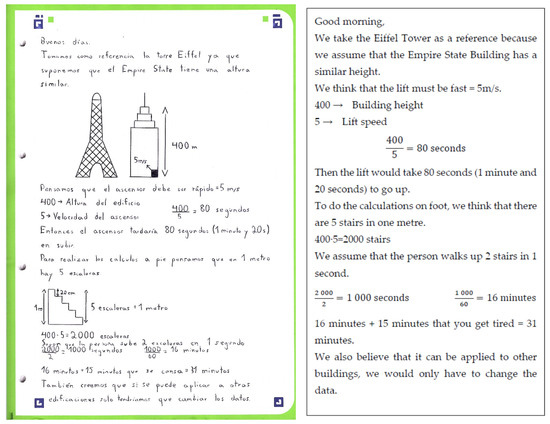 Buenos días.
Tomamos como referencia la torre Eiffel ya que
suponemos que el Empire State tiene una altura
similar.
400 m
5m/s
Pensamos que el ascensor debe ser rápido=5 m/s
400→ Altura del edificio
5→ Velocidad del ascensor
400/5 = 80 segundos
Entonces el ascensor tardaría 80 segundos (1 minuto y 20s)
en subir.
Para realizar los cálculos a pie pensamos que en 1 metro
hay 5 escaleras.
20cm
1m
5 escaleras=1 metro
400·5=2000 escaleras
que la persona sube 2 escaleras en 1 segundo
2000/2=1000 segundos 1000/60=16 minutos
16 minutos+15 minutos que se cansa=31 minutos
También creemos que si se puede aplicar a otras
edificaciones solo tendríamos que cambiar los datos.
Good morning,
We take the Eiffel Tower as a reference because
we assume that the Empire State Building has a
similar height.
We think that the lift must be fast = 5m/s.
400 → Building height
5 → Lift speed
400/5 = 80 seconds
Then the lift would take 80 seconds (1 minute and
20 seconds) to go up.
To do the calculations on foot, we think that there
are 5 stairs in one metre.
400·5=2000 stairs
We assume that the person walks up 2 stairs in 1
second.
2 000/2 = 1 000 seconds 1 000/60 = 16 minutes
16 minutes + 15 minutes that you get tired = 31
minutes.
We also believe that it can be applied to other
buildings, we would only have to change the
data.